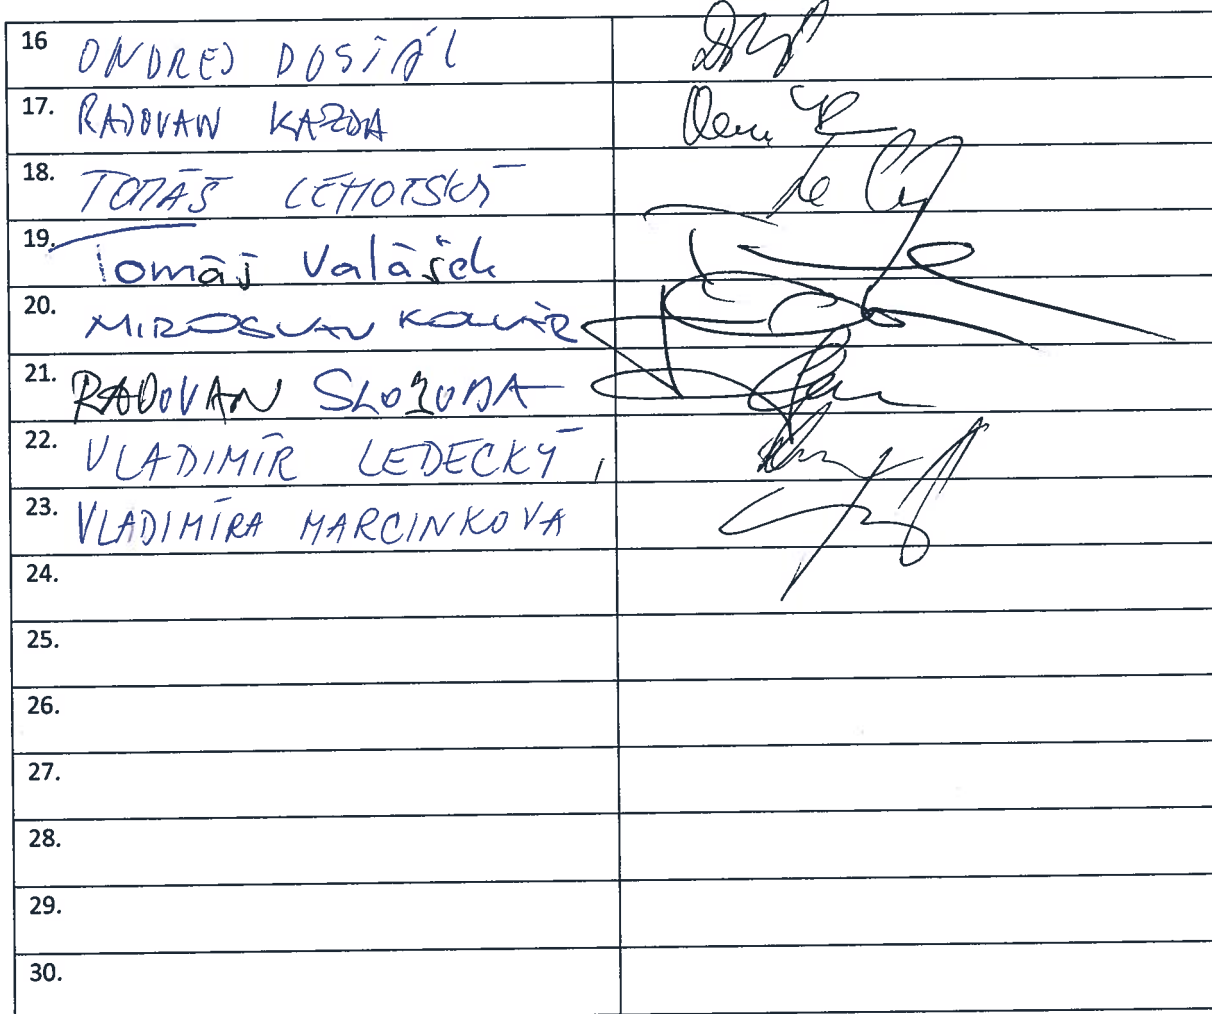 16 ONDREJ DOSTÁL
17. RADOVAN KAZDA
18. TOMÁŠ LEHOTSKÝ
19. Tomáš Valášek
20. MIROSLAV KOLLÁR
21. RADOVAN SLOBODA
22. VLADIMÍR LEDECKÝ
23. VLADIMÍRA MARCINKOVA
24.
25.
26.
27.
28.
29.
30.